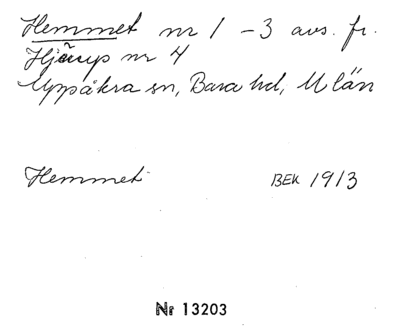 Hemmet nr 1 - 3 avs. fr.
Hjärup nr 4
Uppåkra sn, Bara hd, M län
Hemmet BEK 1913
Nr 13203